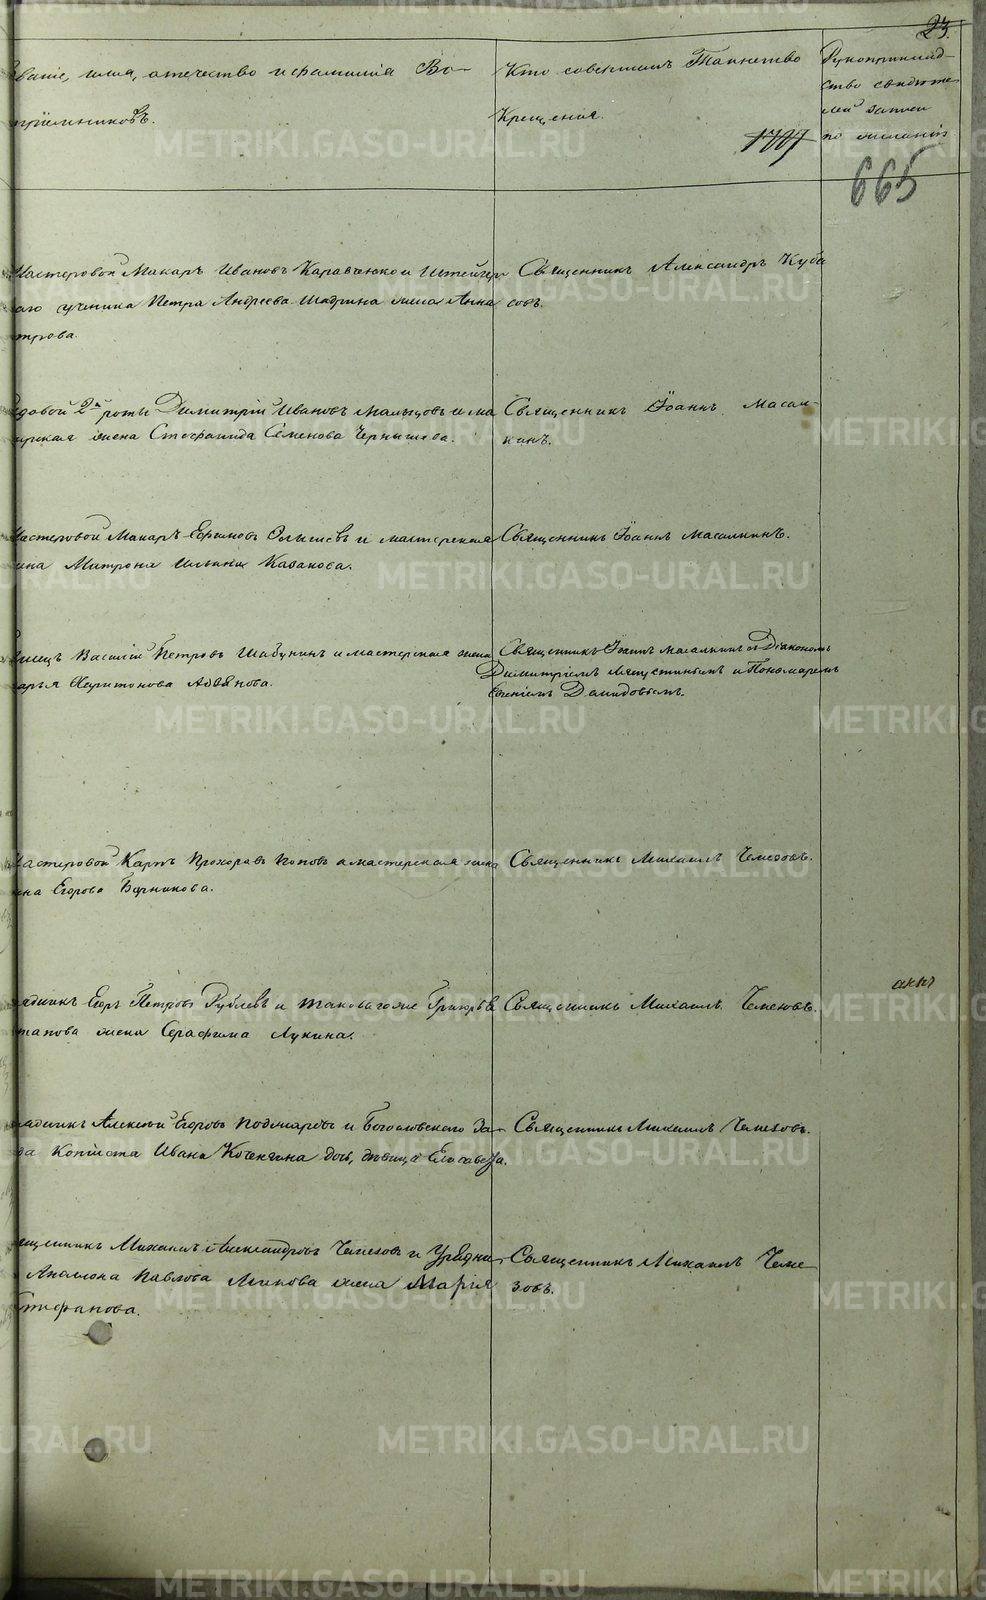 23.
званіе, имя, отечество и фамилія Во-
пріемниковъ.
Кто совершалъ Таинство
Крещенія.
Рукоприклад-
ство свидѣте
лей записи
по желанію
665
Мастеровой Макаръ Ивановъ Кравченко и Штейгер
аго ученика Петра Андреева Шадрина жена Анна
трова.
Священникъ Александръ Куба
совъ.
довой 2й роты Димитрій Ивановъ Мальцовъ и ма
ерская жена Стефанида Семенова Чернышева.
Священникъ Іоаннъ Масал-
кинъ.
Мастеровой Макаръ Ефимовъ и мастерская
ена Матрона Ильина Казакова.
Священникъ Іоаннъ Масалкинъ.
Василій Петровъ Шабунинъ и мастерская жена
арья Харитонова
Священникъ Іоаннъ Масалкинъ съ Діакономъ
Димитріемъ и Пономаремъ
Евгеніемъ Демидовымъ.
Мастеровой Карпъ Прохоровъ Поповъ и мастерская жена
ена Егорова
Священникъ Михаилъ Чемезовъ.
адникъ Егоръ Петровъ Рублевъ и таковагоже Григорьева
тапова жена Серафима Лукина.
Священникъ Михаилъ Чемезовъ.
адникъ Алексѣй Егоровъ и Богословскаго За-
да Копіиста Ивана Коченгина дочь, дѣвица Елисавета.
Священникъ Михаилъ Чемезовъ.
ященникъ Михаилъ Александровъ Чемезовъ и Урядни
Павлова жена Марія
Стефанова.
Священникъ Михаилъ Чеме
зовъ.
METRIKI.GASO-URAL.RU